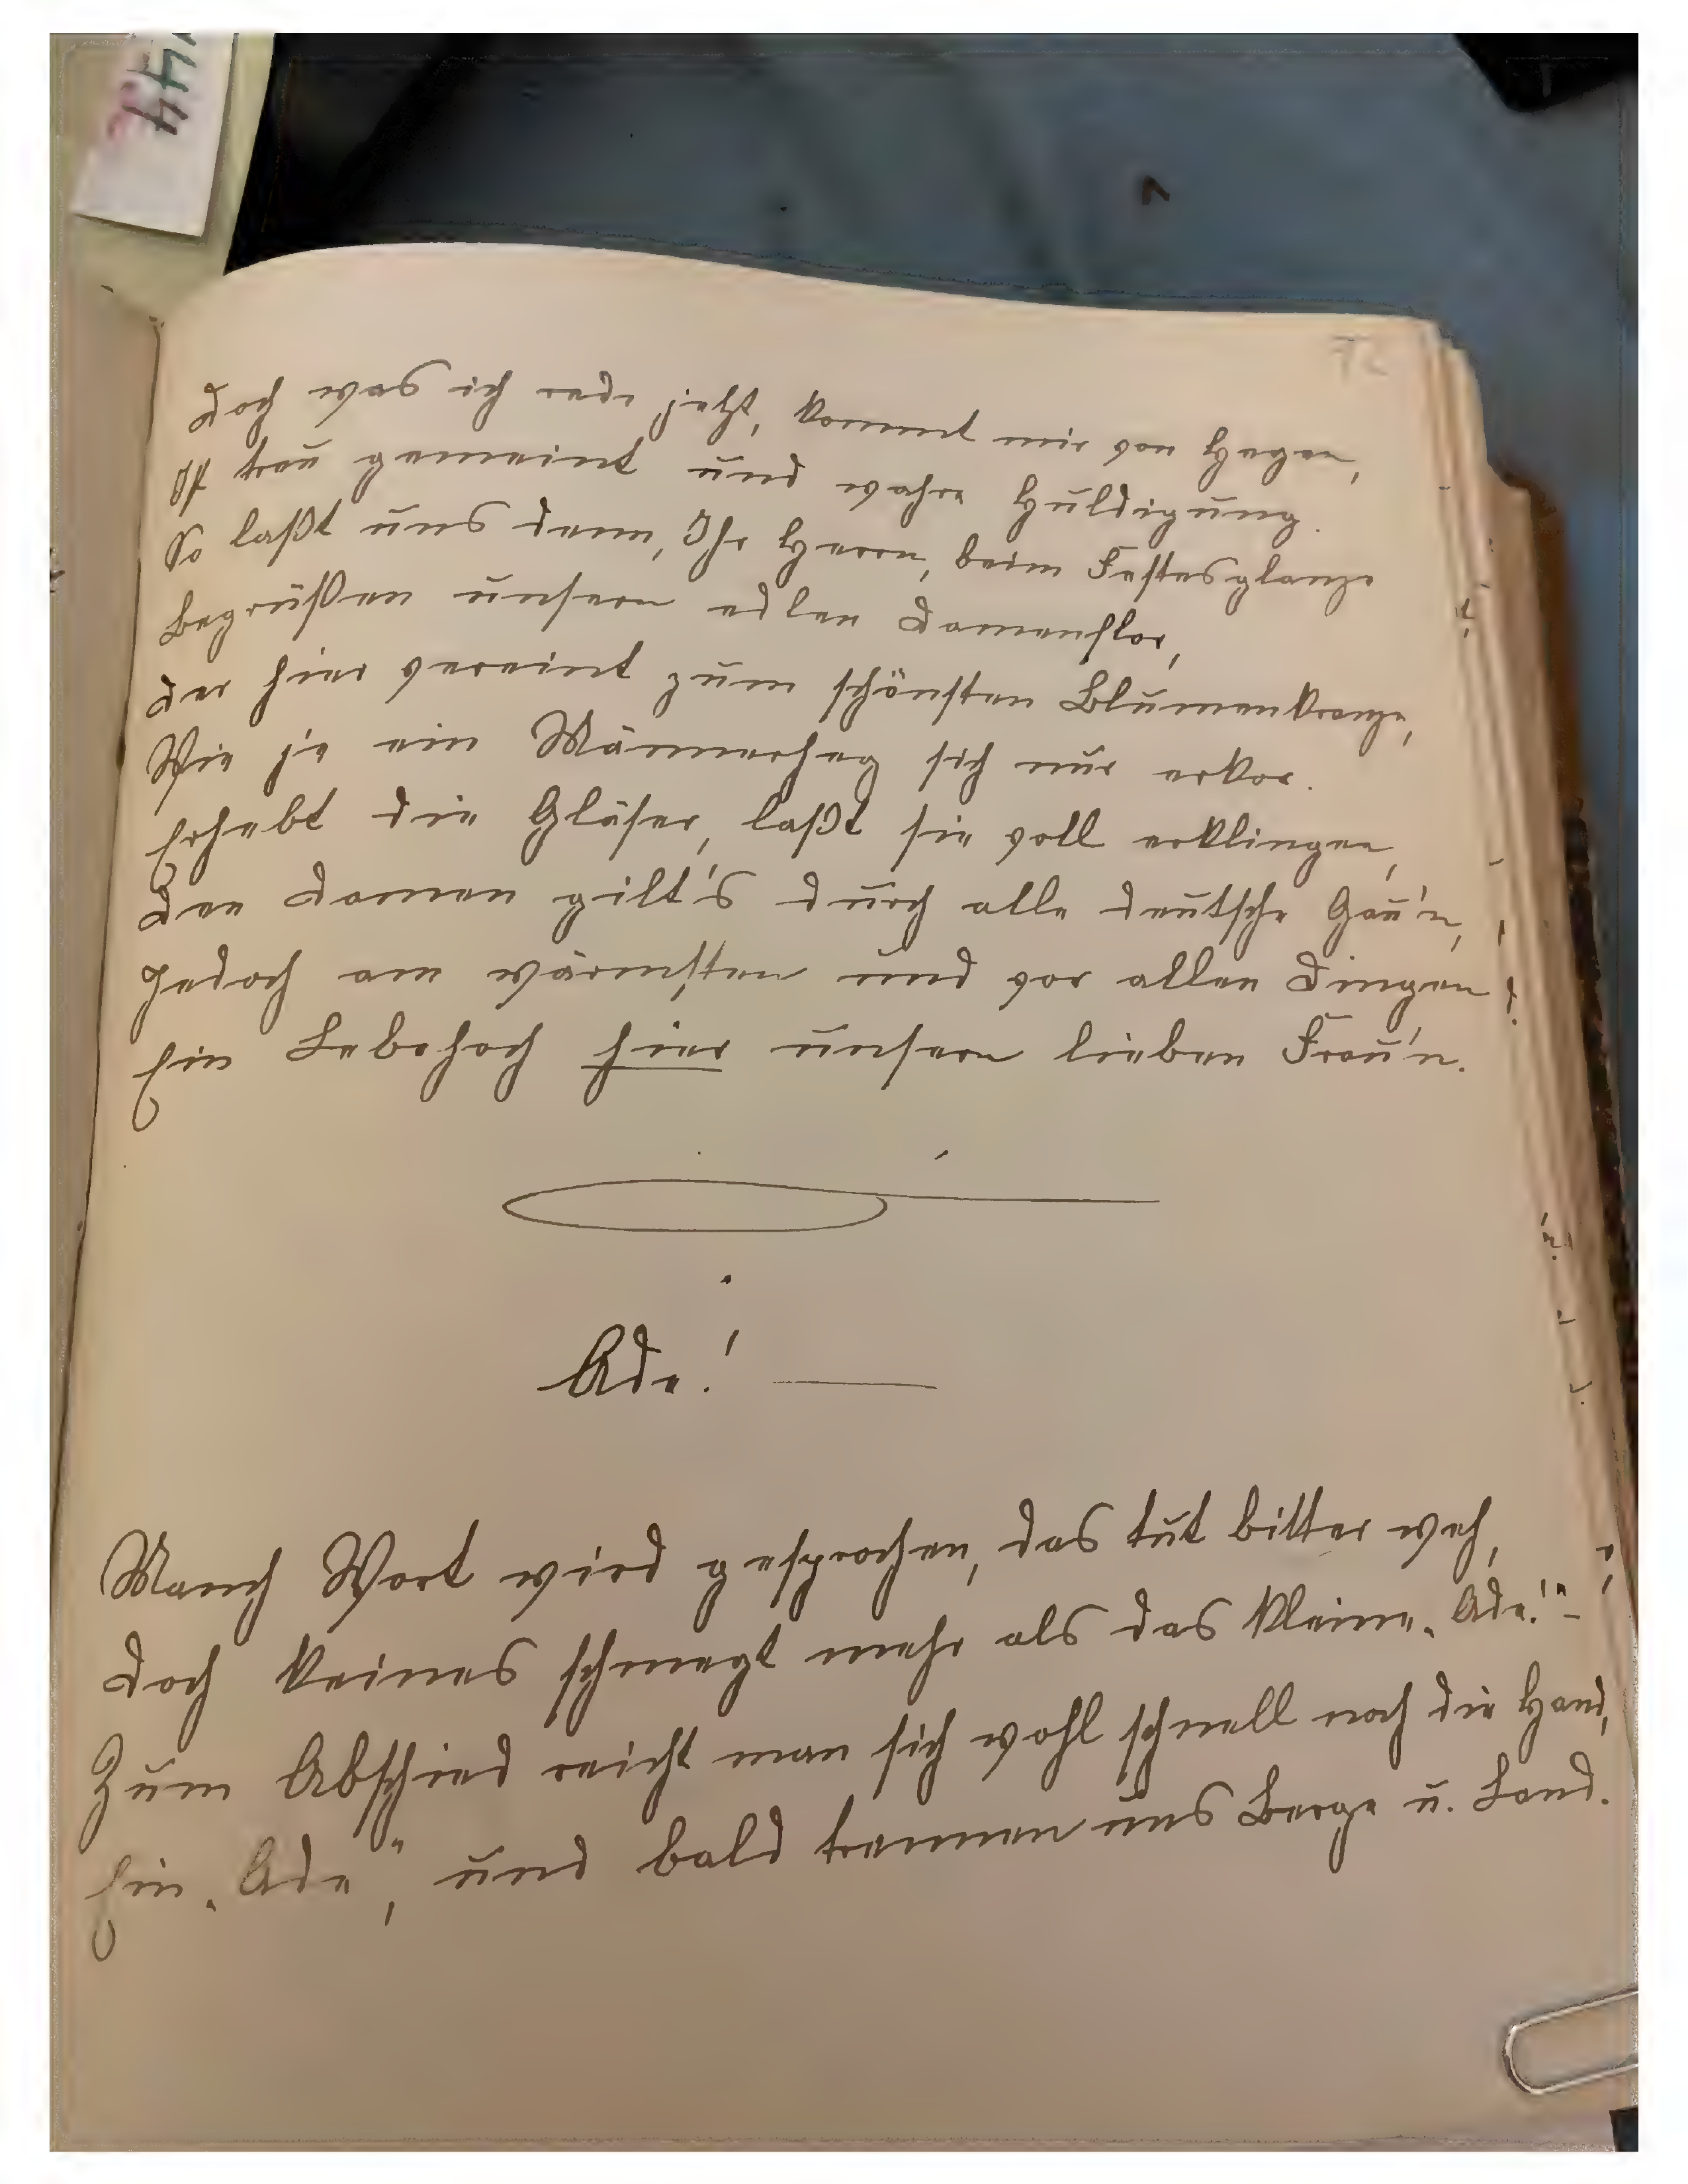 72
Doch was ich rede jetzt, kommt mir von Herzen,
Ist treu gemeint und wahre Huldigung.
So laßt uns denn, Ihr Herrn, beim Festesglanze
Begrüßen unsern edlen Damenflor,
Der hier vereint zum schönsten Blumenkranze,
Wie je ein Männerherz sich nur erkor.
Erhebt die Gläser, laßt sie voll erklingen,
Den Damen gilt's durch alle deutsche Gau'n,
Jedoch am wärmsten und vor allen Dingen
Ein Lebehoch hier unsern lieben Frau'n.
Ade!
Manch Wort wird gesprochen, das tut bitter weh,
Doch keines schmerzt mehr als das kleine „Ade!" –
Zum Abschied reicht man sich wohl schnell noch die Hand,
Ein „Ade", und bald trennen uns Berge u. Land.